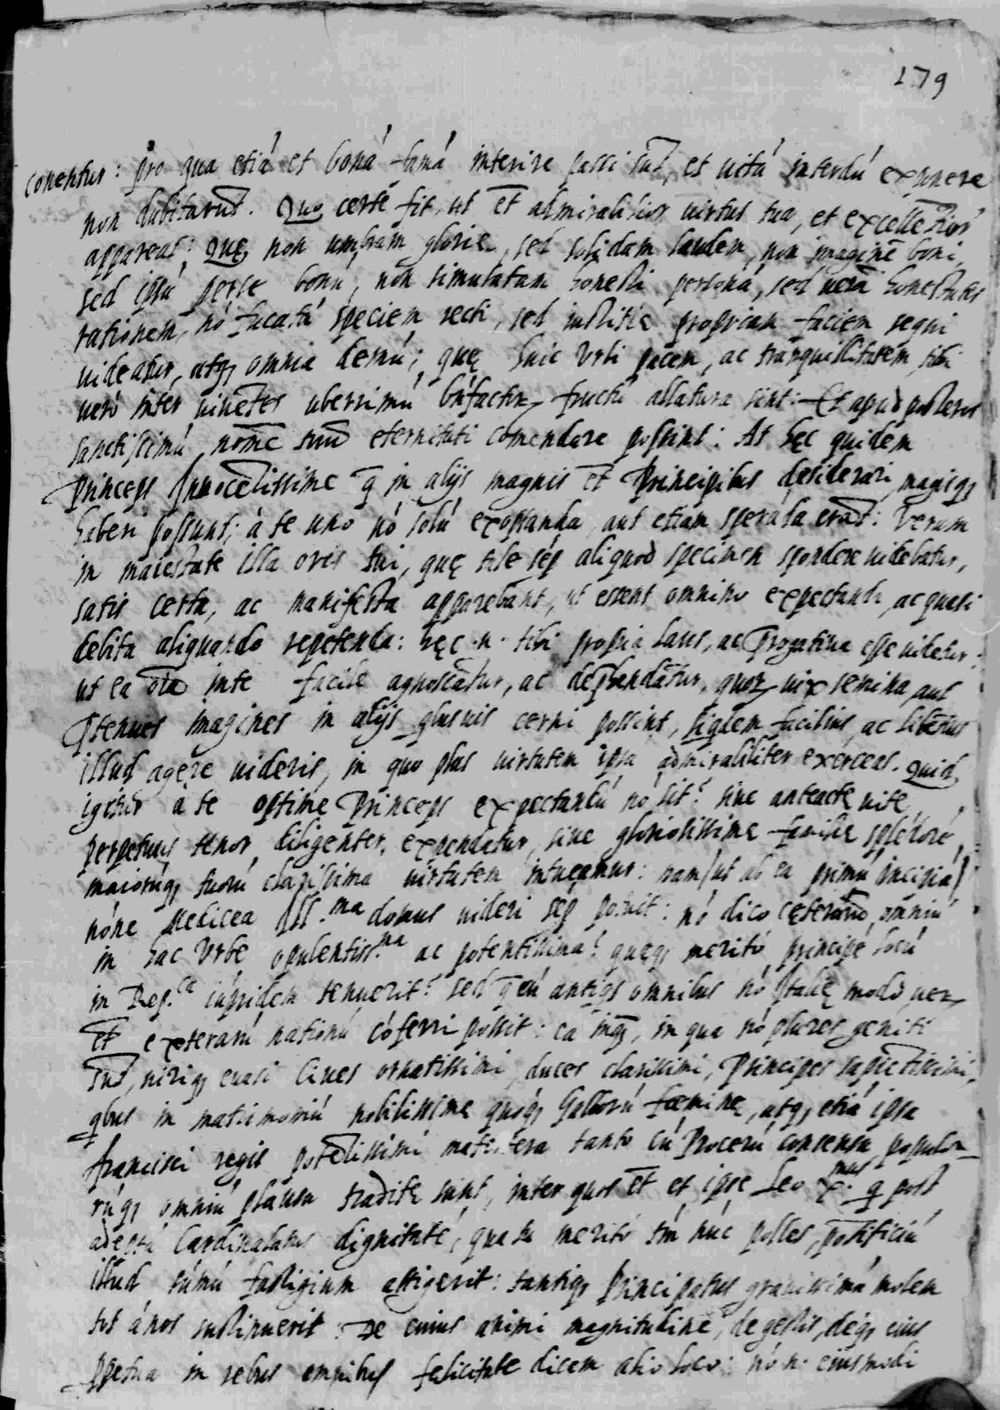 179
conentur: pro qua etiã et bonã famã interire passi sũt, et uitã interdũ exponere
non dubitarũt. Quo certe fit, ut et admirabilior uirtus tua, et excellẽtior
appareat: quę non umbram glorię, sed solidam laudem, non imaginẽ boni,
sed ipsũ per se bonũ, non simulatam honesti personã, sed uerã honestatis
rationem, nõ fucatã speciem recti, sed iustitię propriam faciem sequi
uideatur, atq; omnia demũ; quę huic Vrbi pacem, ac tranquillitatem tibi
uero inter uiuẽtes uberrimũ fructũ allatura sint: Et apud posteros
sanctissimũ nomẽ tuũ eternitati comendare possint: At hęc quidem
Princeps Innocẽtissime q̃ in alijs magnis et Principibus desiderari magisq;
haberi possunt; à te uno nõ solũ exoptanda, aut etiam sperãda erãt: Verum
in maiestate illa oris tui, quę tale sẽp aliquod specimen spondere uidebatur,
satis certa, ac manifesta apparebant, ut essent omnino expectanda, ac quasi
debita aliquando repetenda: hęc .n. tibi propria laus, ac p̃rogatiua esse uidetur:
ut ea oĩa in te facile agnoscãtur, ac dep̃hendãtur, quor; uix semina, aut
p̃tenues imagines in alijs q̃busuis cerni possint, siq̃dem facilius ac liberius
illud agere uideris, in quo plus uirtutem ipsa admirabiliter exerceas. Quid
igitur à te optime Princeps expectandũ nõ sit? siue anteactę uitę
perpetuus tenor diligenter expendatur, siue gloriosissimę familię splẽdorẽ,
maiorũq; tuorũ clarissima uirtutem intueamur: nam (ut ab ea primũ incipiã)
nõne Medicea Ill.ma domus uideri sẽp potuit: nõ dico ceterarũ omniũ
in hac Vrbe opulentiss.ma ac potentissima? quęq; merito principẽ locũ
in Rep.ca iãpridem tenuerit? sed q̃ cũ antiq̃s omnibus nõ Italię modo uer;
et exterarũ nationũ cõferri possit: ea inq̃, in qua nõ plures geniti
sũt, uiriq; euasi Ciues ornatissimi, duces clarissimi, Principes sapiẽtissimi,
q̃bus in matrimoniũ nobilissimę quęq; Gallorũ fœminę, atq; etiã ipsa
francisci regis potẽtissimi matertera tanto cũ Procerũ consensu, populo-
rũq; omniũ plausu traditę sunt, inter quos et et ipse Leo X.mus q̃ post
adeptã Cardinalatus dignitatẽ, qua tu merito tm̃ nũc polles, põtificiũ
illud sũmũ fastigium attigerit: tantiq; Principatus grauissimã molem
tot ãnos sustinuerit: De cuius animi magnitudine, de gestis, deq; eius
p̃petua in rebus omnibus felicitate dicem alio loco: nõ .n. eiusmodi